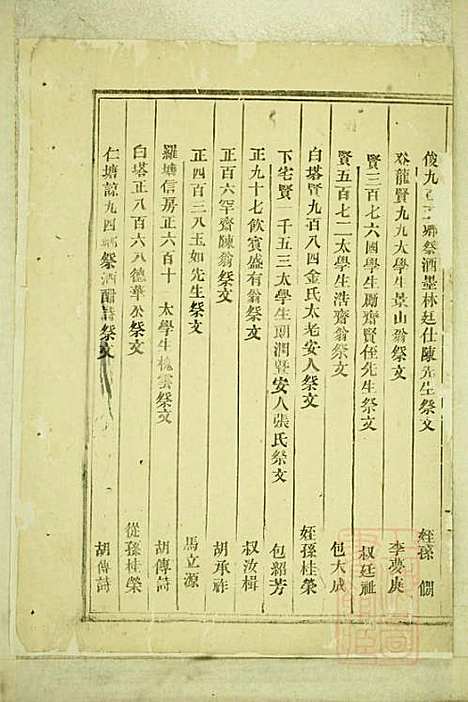 俊九 鄉祭酒墨林廷仕陳先生祭文 姪孫
龍賢九九大學生景山翁祭文 李夢庚
賢三百七六國學生勵齋賢侄先生祭文 叔廷祉
賢五百七二太學生浩齋翁祭文 包大成
白塔賢九百八四金氏太老安人祭文 姪孫桂榮
下宅賢一千五三太學生朝潤暨安人張氏祭文 包紹芳
正九十七飲賓盛有翁祭文 叔汝楫
正百六罕齋陳翁祭文 胡承祚
正四百三八玉如先生祭文 馬立源
羅塘信房正六百十 太學生槐雲祭文 胡傳詩
白塔正八百六八德華公祭文 從孫桂榮
仁塘諒九四鄉祭酒 祭文 胡傳詩